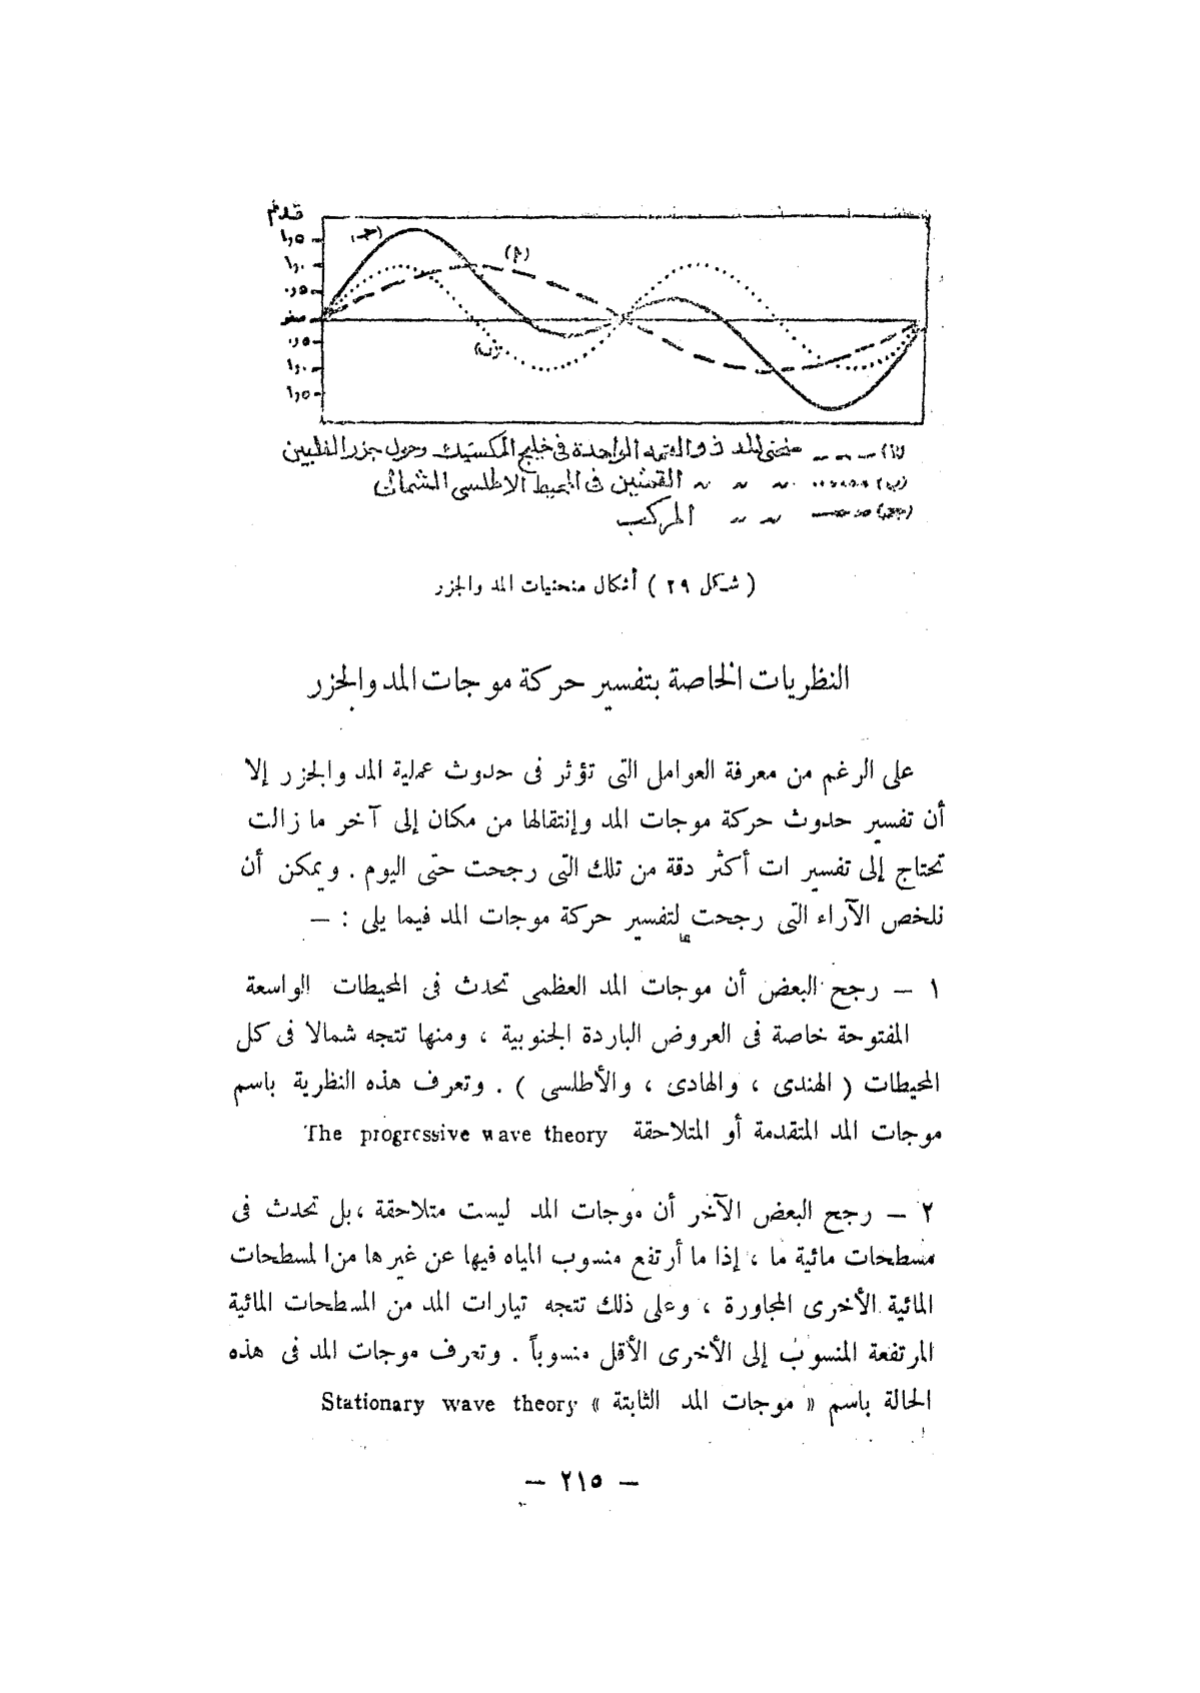 قدم
١,٥
١,٠
٠,٥
صفر
٠,٥
١,٠
١,٥
(جـ)
(أ)
(ب)
(أ) منحنى المد ذو القمه الواحدة فى خليج المكسيك وحول جزر الفلبين
(ب) " " " القمتين فى المحيط الاطلسى الشمالى
(جـ) " " المركب
( شكل ٢٩ ) أشكال منحنيات المد والجزر
النظريات الخاصة بتفسير حركة موجات المد والجزر
على الرغم من معرفة العوامل التى تؤثر فى حدوث عملية المد والجزر إلا
أن تفسير حدوث حركة موجات المد وإنتقالها من مكان إلى آخر ما زالت
تحتاج إلى تفسيرات أكثر دقة من تلك التى رجحت حتى اليوم . ويمكن أن
نلخص الآراء التى رجحت لتفسير حركة موجات المد فيما يلى : —
١ — رجح البعض أن موجات المد العظمى تحدث فى المحيطات الواسعة
المفتوحة خاصة فى العروض الباردة الجنوبية ، ومنها تتجه شمالا فى كل
المحيطات ( الهندى ، والهادى ، والأطلسى ) . وتعرف هذه النظرية باسم
موجات المد المتقدمة أو المتلاحقة The progressive wave theory
٢ — رجح البعض الآخر أن موجات المد ليست متلاحقة ، بل تحدث فى
مسطحات مائية ما ، إذا ما أرتفع منسوب المياه فيها عن غيرها من المسطحات
المائية الأخرى المجاورة ، وعلى ذلك تتجه تيارات المد من المسطحات المائية
المرتفعة المنسوب إلى الأخرى الأقل منسوباً . وتعرف موجات المد فى هذه
الحالة باسم « موجات المد الثابتة » Stationary wave theory
— ٢١٥ —